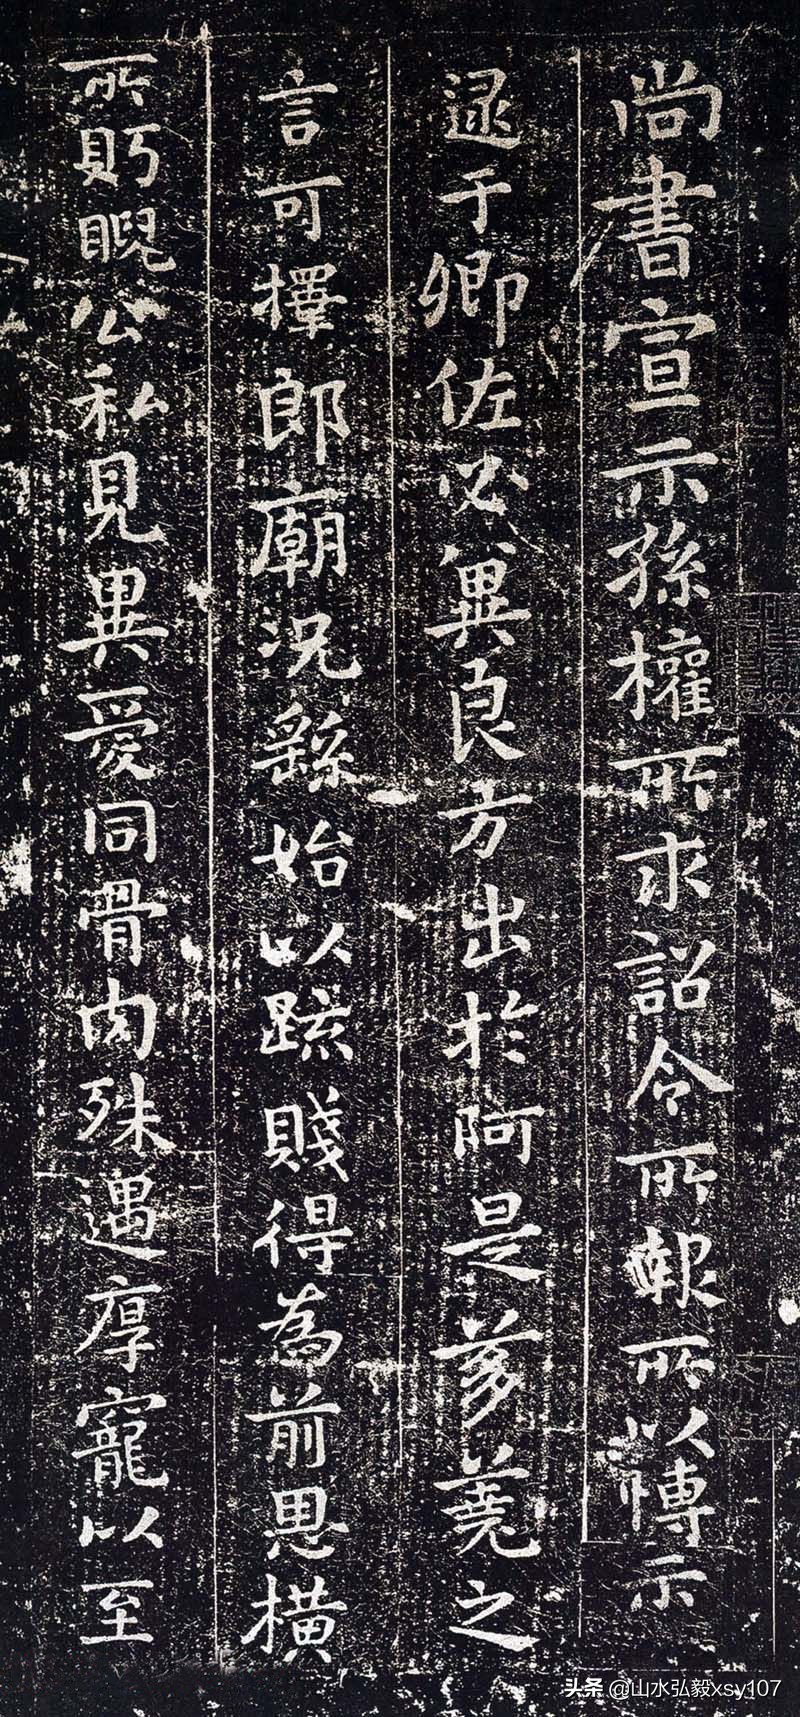 尚書宣示孫權所求詔令所報所以博示
逮于卿佐必冀良方出於阿是芻蕘之
言可擇郎廟況繇始以疏賤得為前恩橫
所眄睨公私見異愛同骨肉殊遇厚寵以至
头条 @山水弘毅xsy107